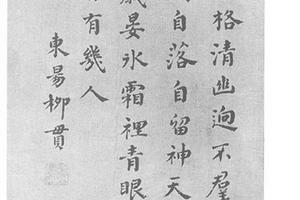 格清幽逈不羣
自落自留神天
歲晏氷霜裡青眼
有幾人
東昜柳貫